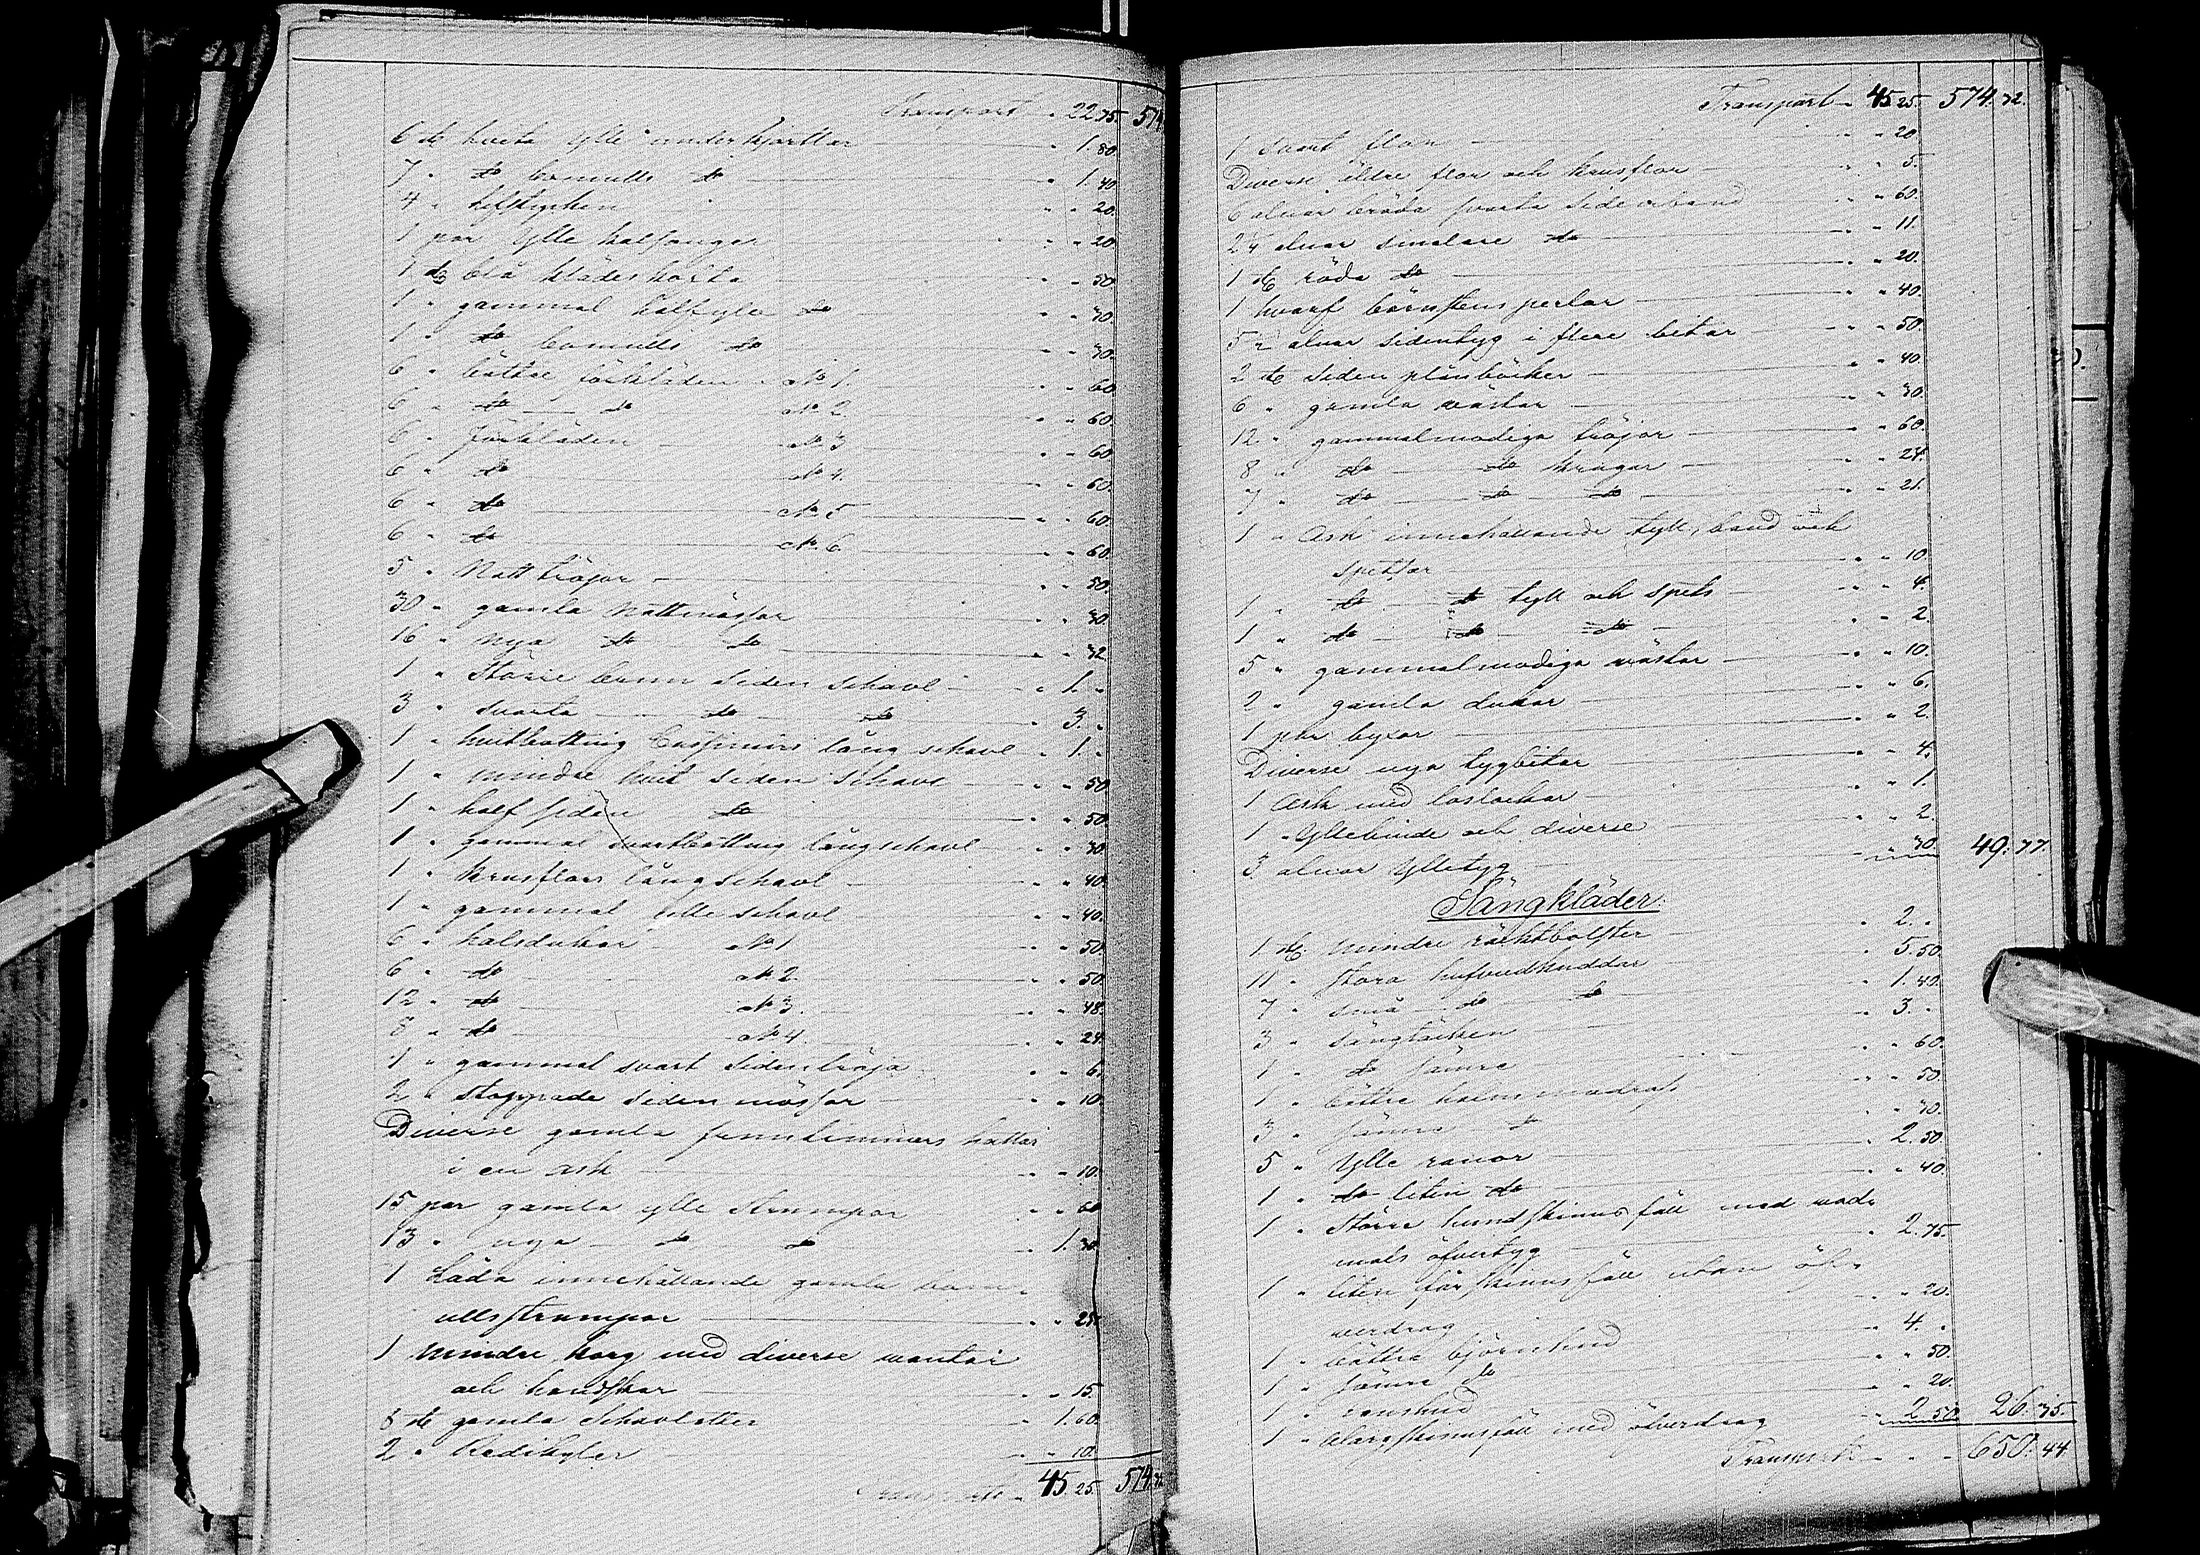 Transport „ 22.75. 574
6 st hvita ylle underkjortlar „ 1.80.
7 „ do bomulls do „ 1.40
4 „ lifstycken „ „ 20.
1 par ylle halfvangar „ „ 20.
1 st blå klädeskofta „ „ 50
1 „ gammal halfylle do „ „ 30.
1 „ do bomulls do „ „ 30.
6 „ bättre förkläden No 1. „ „ 60
6 „ do do No 2. „ „ 60.
6 „ förkläden No 3 „ „ 60
6 „ do No 4. „ „ 60.
6 „ do No 5 „ „ 60.
6 „ do No 6. „ „ 60.
5 „ Natttröjor „ „ 50.
30 „ gamla nattmössor „ „ 30.
16 „ nya do do „ „ 32
1 „ större brun siden schavl „ 1. „
3 „ svarta do do „ 3. „
1 „ hvitbottnig Cassimirs lång schavl „ 1. „
1 „ mindre hvit siden schavl „ „ 50
1 „ halfsiden do „ „ 50.
1 „ gammal svartbottnig långschavl „ „ 30.
1 „ krusflors långschavl „ „ 40.
1 „ gammal ylle schavl „ „ 40.
6 „ halsdukar No 1 „ „ 50.
6 „ do No 2. „ „ 50.
12 „ do No 3. „ „ 48.
8 „ do No 4. „ „ 24.
1 „ gammal svart siden tröja „ „ 6.
2 „ stoppade siden mössor „ „ 10.
Diverse gamla fruntimmers hattar
i en ask „ „ 10.
15 par gamla ylle strumpor „ „ 60
13 „ nya do do „ 1.30.
1 Låda innehållande gamla bom„
ullsstrumpor „ „ 25.
1 mindre korg med diverse vantar
och handskar „ „ 15.
8 st gamla schavletter „ 1.60.
2 „ Redikyler „ „ 10.
Transport „ 45.25. 574.72
Transport „ 45.25. 574.72.
1 svart flor „ „ 20
Diverse äldre flor och krusflor „ „ 5.
6 alnar breda svarta sidenband „ „ 60.
24 alnar smalare do „ „ 11.
1 st röda do „ „ 20.
1 hvarf bernstens perlor „ „ 40.
5 „ alnar sidentyg i flere bitar „ „ 50.
2 st siden plånböcker „ „ 40.
6 „ gamla västar „ „ 30.
12 „ gammalmodiga tröjor „ „ 60.
8 „ do do kragar „ „ 24.
7 „ do do do „ „ 21.
1 „ Ask innehållande tyll, band och
spetsar „ „ 10.
1 „ do do tyll och spets „ „ 4.
1 „ do do do „ „ 2.
5 „ gammalmodiga västar „ „ 10.
2 „ gamla dukar „ „ 6.
1 par byxor „ „ 2.
Diverse nya tygbitar „ „ 4.
1 Ask med loslockar „ „ 1.
1 „ Yllebinde och diverse „ „ 2.
3 alnar ylletyg „ „ 30. 49.77.
Sängkläder.
1 st. mindre räcktbolster „ 2. „
11 „ stora hufvudkuddar „ 5.50.
7 „ små do do „ 1.40.
3 „ sängtäcken „ 3. „
1 „ do sämre „ „ 60.
1 „ bättre halmmadrass „ „ 50.
3 „ sämre do „ „ 30.
5 „ Ylle ranor „ 2.50.
1 „ do liten do „ „ 40.
1 „ större hundskinnsfäll med vad„
mals öfvertyg „ 2.75.
1 „ liten fårskinnsfäll utan öf„
verdrag „ „ 20.
1 „ bättre björnhud „ 4. „
1 „ sämre do „ „ 50.
1 „ renshud „ „ 20.
1 „ Vargskinnsfäll med öfverdrag „ 2.50 26.35.
Transport „ „ 650.44